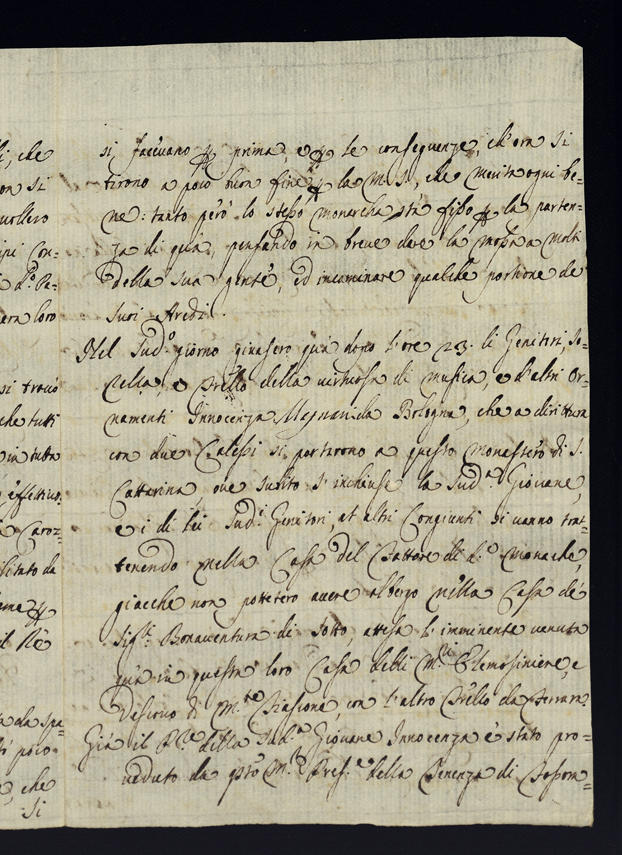 li, che
on si
vollero
ipi Con=
i d.i Pe=
era loro
si trovò
che tutti
in tutta
effettivo
Caroz=
bilitato da
il Rè
da spa=
di poco
, che
si
si facevano prima, e le conseguenze, ch'ora si
tirono a poco buon fine la M. S., che merita ogni be=
ne: tanto però lo stesso monarcha stà fisso la parten=
za di quà, pensando in breve dare la mossa a molti
della sua gente, ed incaminare qualche portione de
suoi Aredi.
Nel sud.o giorno ginsero quà dopo l'ore 23. li Genitori, So=
rella, e Frello della virtuosa di musica, e d'altri Or=
namenti Innocenza Mejnani da Bologna, che a dirittura
con due Calessi si portarono a questo monastero di S.
Cattarina, ove subito s'inchiuse la Sud.a Giovane,
e i di lei Sud.i Genitori, et altri Congiunti si vanno trat=
tenendo nella Casa del Fattore di d.e Monache,
giacche non potetero avere albergo nella Casa dé
Sig.ri Bonaventura di Sotto, attesa l'imminente venuta
quà in questa loro Casa delli M.ri Elemosiniere, e
Vescovo di M.te Fiascone, con l'altro Frello da Ferrara
Già il P.re della Sud.a Giovane Innocenza è stato pro=
veduto da M.r Pres.e della Tenenza di Bossom=